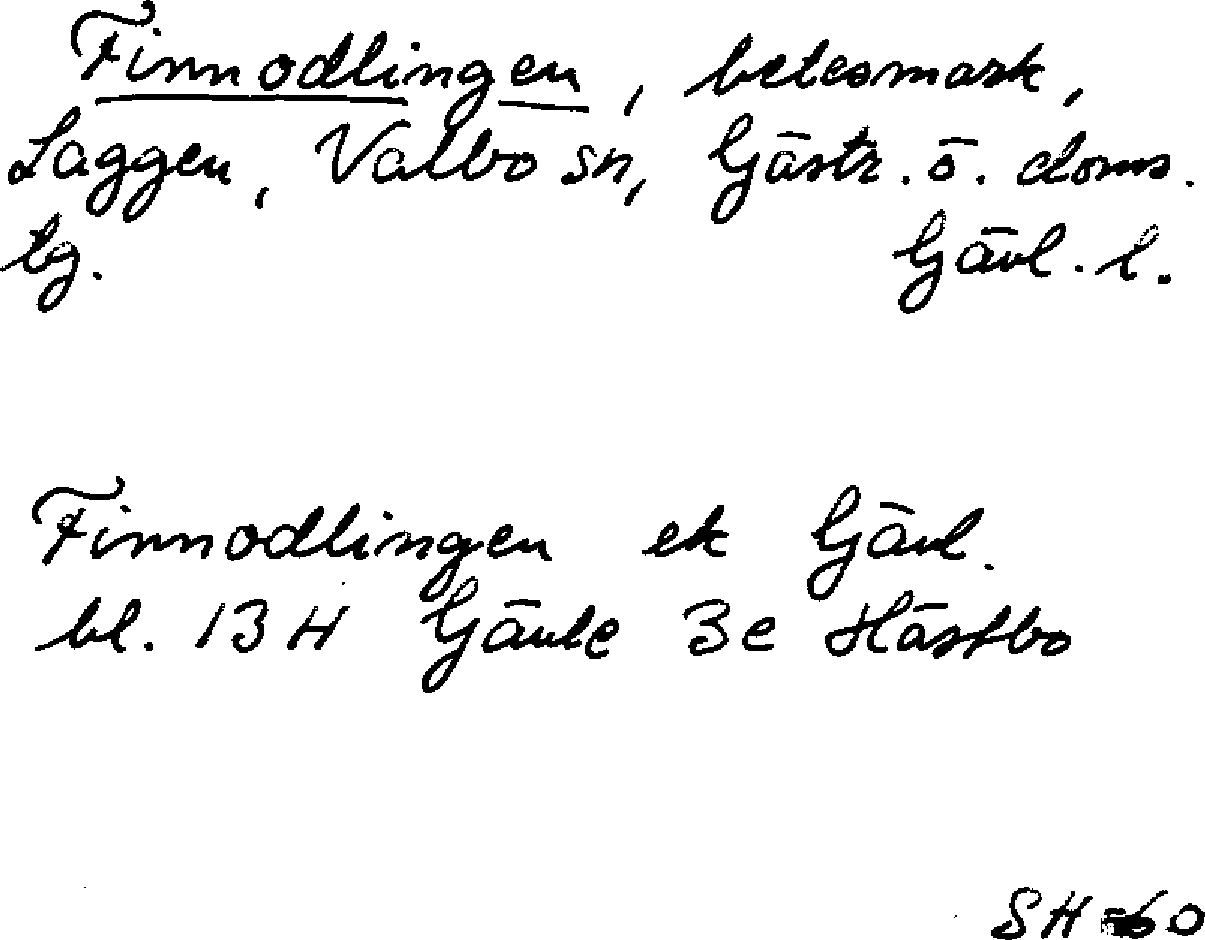 Finnodlingen, betesmark,
Laggen, Valbo sn, Gästr. ö. doms.
tg. Gävl. l.
Finnodlingen ek Gävl.
bl. 13 H Gävle 3e Hästbo
SH-60